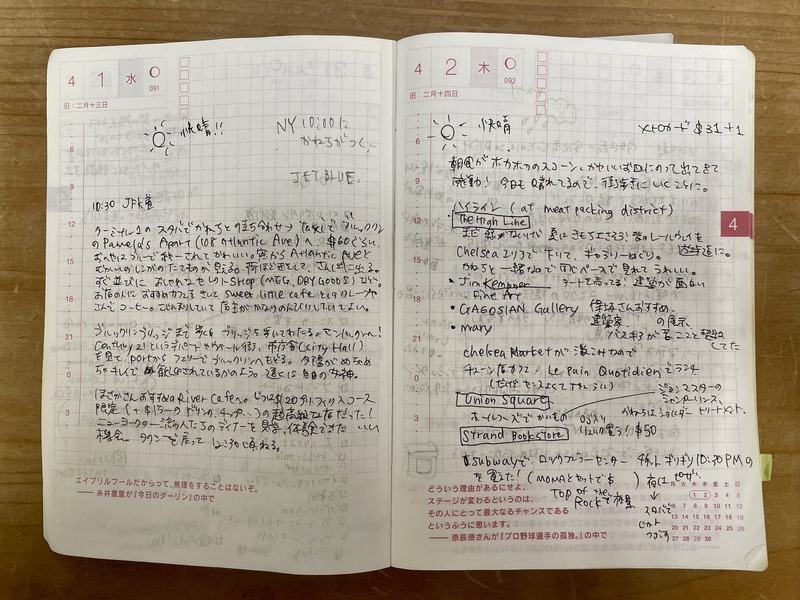 4 1 水
091
旧：二月十三日
快晴!!
NY 10:00に
かねちがつく
JETBLUE.
10:30 JFK着
ターミナル1のスタバでかねちと待ち合せ→
のPamela's Apart (108 Atlantic Ave) へ. $60ぐらい.
おへやはブルーで統一されてかわいい. 窓から Atlantic Aveと
むかいのレンガのたてものが見える. 荷ほどきをして、さんぽに出る.
すぐ並びに おしゃれなセレクトSHOP (MEG, DRY GOODS) など.
お店の人におすすめカフェをきいて sweet little cafe
さんでコーヒー.
ブルックリンブリッジまで歩く. ブリッジを歩いてわたる。マンハッタンへ!
Century 21というデパートやウォール街、市庁舎(City Hall)
を見て、portからフェリーでブルックリンへもどる. 夕陽がめちゃめ
ちゃキレイで 祝福されているかのよう. 遠くに自由の女神.
ほさかさんおすすめの River Cafeへ.
限定 (+$15〜のドリンク、チップ…) の超高級な店だった!
ニューヨークの一流の人たちのディナーを見学、体験できた いい
機会. タクシーで戻って 12:30に寝る.
エイプリルフールだからって、無理をすることはないぞ。
── 糸井重里が『今日のダーリン』の中で
4 2 木
092
旧：二月十四日
快晴
メトロカード $31+1
朝食がホカホカのスコーン、かわいいお皿にのって出てきて
感動! 今日も晴れてるので、街歩きにいくことに。
ハイライン (at meat packing district)
The High Line
まだ緑がないけど 夏はきもちよさそう! 昔のレールウェイを
遊歩道に。
Chelseaエリアで下りて、ギャラリーめぐり。
かねちと一緒なので同じペースで見れてうれしい。
・Jim Kempner
Fine Art
アートも売ってる! 建物が面白い
・GAGOSIAN Gallery
保坂さんおすすめ、
建築家 の展示
・mary
バスキアが 苦
してた
chelsea Marketが激こみなので
チェーン店カフェ、Le Pain Quotidienでランチ
(だけどセンスよくてすれしい)
Union Square
ジョンマスターの
シャンプーリンス、
ホールフーズでかいもの
かねちはショルダー トリートメント.
$50
Strand Bookstore
Subwayで ロックフェラーセンター
ギリギリ 10:30PMの
を買えた! (MOMAとセットで$ )
TOP of the
ROCKで夜景
夜はピザ.
↓
スタバで
4
月 火 水 木 金 土 日
1 2 3 4 5
6 7 8 9 10 11 12
13 14 15 16 17 18 19
20 21 22 23 24 25 26
27 28 29 30
どういう理由があるにせよ、
ステージが変わるというのは、
その人にとって最大なるチャンスである
というふうに思います。
── 原辰徳さんが『プロ野球選手の孤独。』の中で